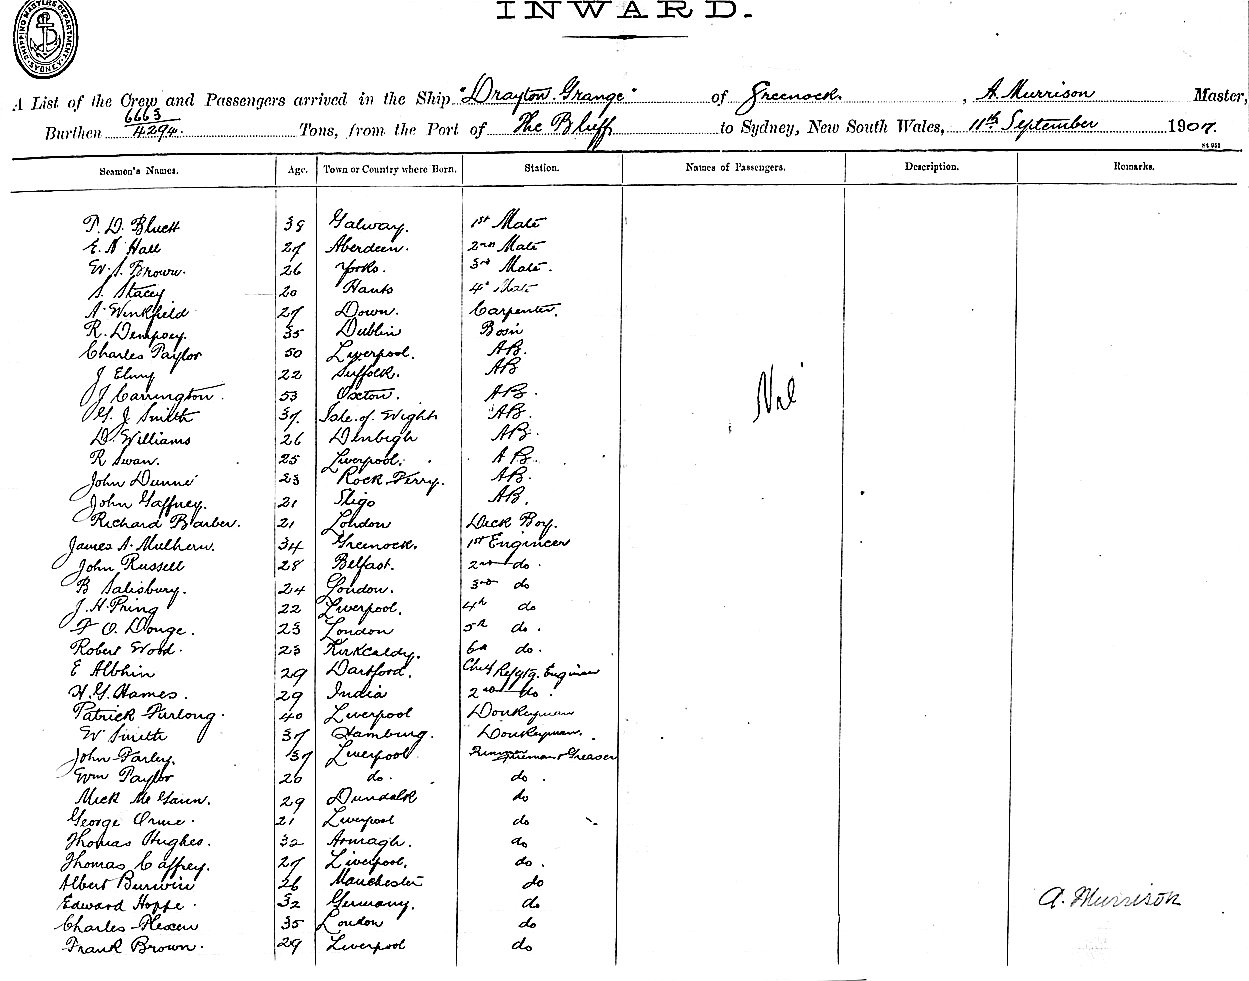 SHIPPING MASTERS DEPARTMENT SYDNEY
INWARD.
A List of the Crew and Passengers arrived in the Ship "Drayton Grange" of Greenock, A Murrison Master,
Burthen 6663 / 4294 Tons, from the Port of The Bluff to Sydney, New South Wales, 11th September 1907.
Seamen's Names. Age. Town or Country where Born. Station. Names of Passengers. Description. Remarks.
P. D. Bluett 38 Galway. 1st Mate
E. N Hall 27 Aberdeen. 2nd Mate
W. S. Brown. 26 Yorks. 3rd Mate.
S. Stacey 20 Hants 4th Mate
A. Winkfield 27 Down. Carpenter.
R. Dempsey. 35 Dublin Bosn
Charles Taylor 50 Liverpool. AB.
J Elmy 22 Suffolk. AB
J Carrington 53 Oxton. AB.
G. J Smith 37. Isle of Wight AB.
D. Williams 26 Denbigh AB.
R Swan. 25 Liverpool. AB.
John Dunne 23 Rock Ferry. AB.
John Gaffney. 21 Sligo AB.
Richard Barber. 21 London Deck Boy.
James A. Mulhern. 34 Greenock. 1st Engineer
John Russell 28 Belfast. 2nd do.
B Salisbury. 24 London. 3rd do
J. H Pring 22 Liverpool. 4th do
F O. Donge. 23 London 5th do.
Robert Wood. 23 Kirkcaldy. 6th do.
E Albhin 29 Dartford. Chief Refgtg. Engineer
H. G. Hames. 29 India 2nd do.
Patrick Furlong. 40 Liverpool Donkeyman
W Smith 37 Hamburg. Donkeyman.
John Farley. 37 Liverpool Fireman & Greaser
Wm Taylor 20 do. do.
Mick McGann. 29 Dundalk do
George Orme. 21 Liverpool do
Thomas Hughes. 32 Armagh. do
Thomas Caffrey. 27 Liverpool. do.
Albert Burwin 26 Manchester do
Edward Hoppe. 32 Germany. do
Charles Flexen 35 London do
Frank Brown. 29 Liverpool do
Nil
A. Murrison